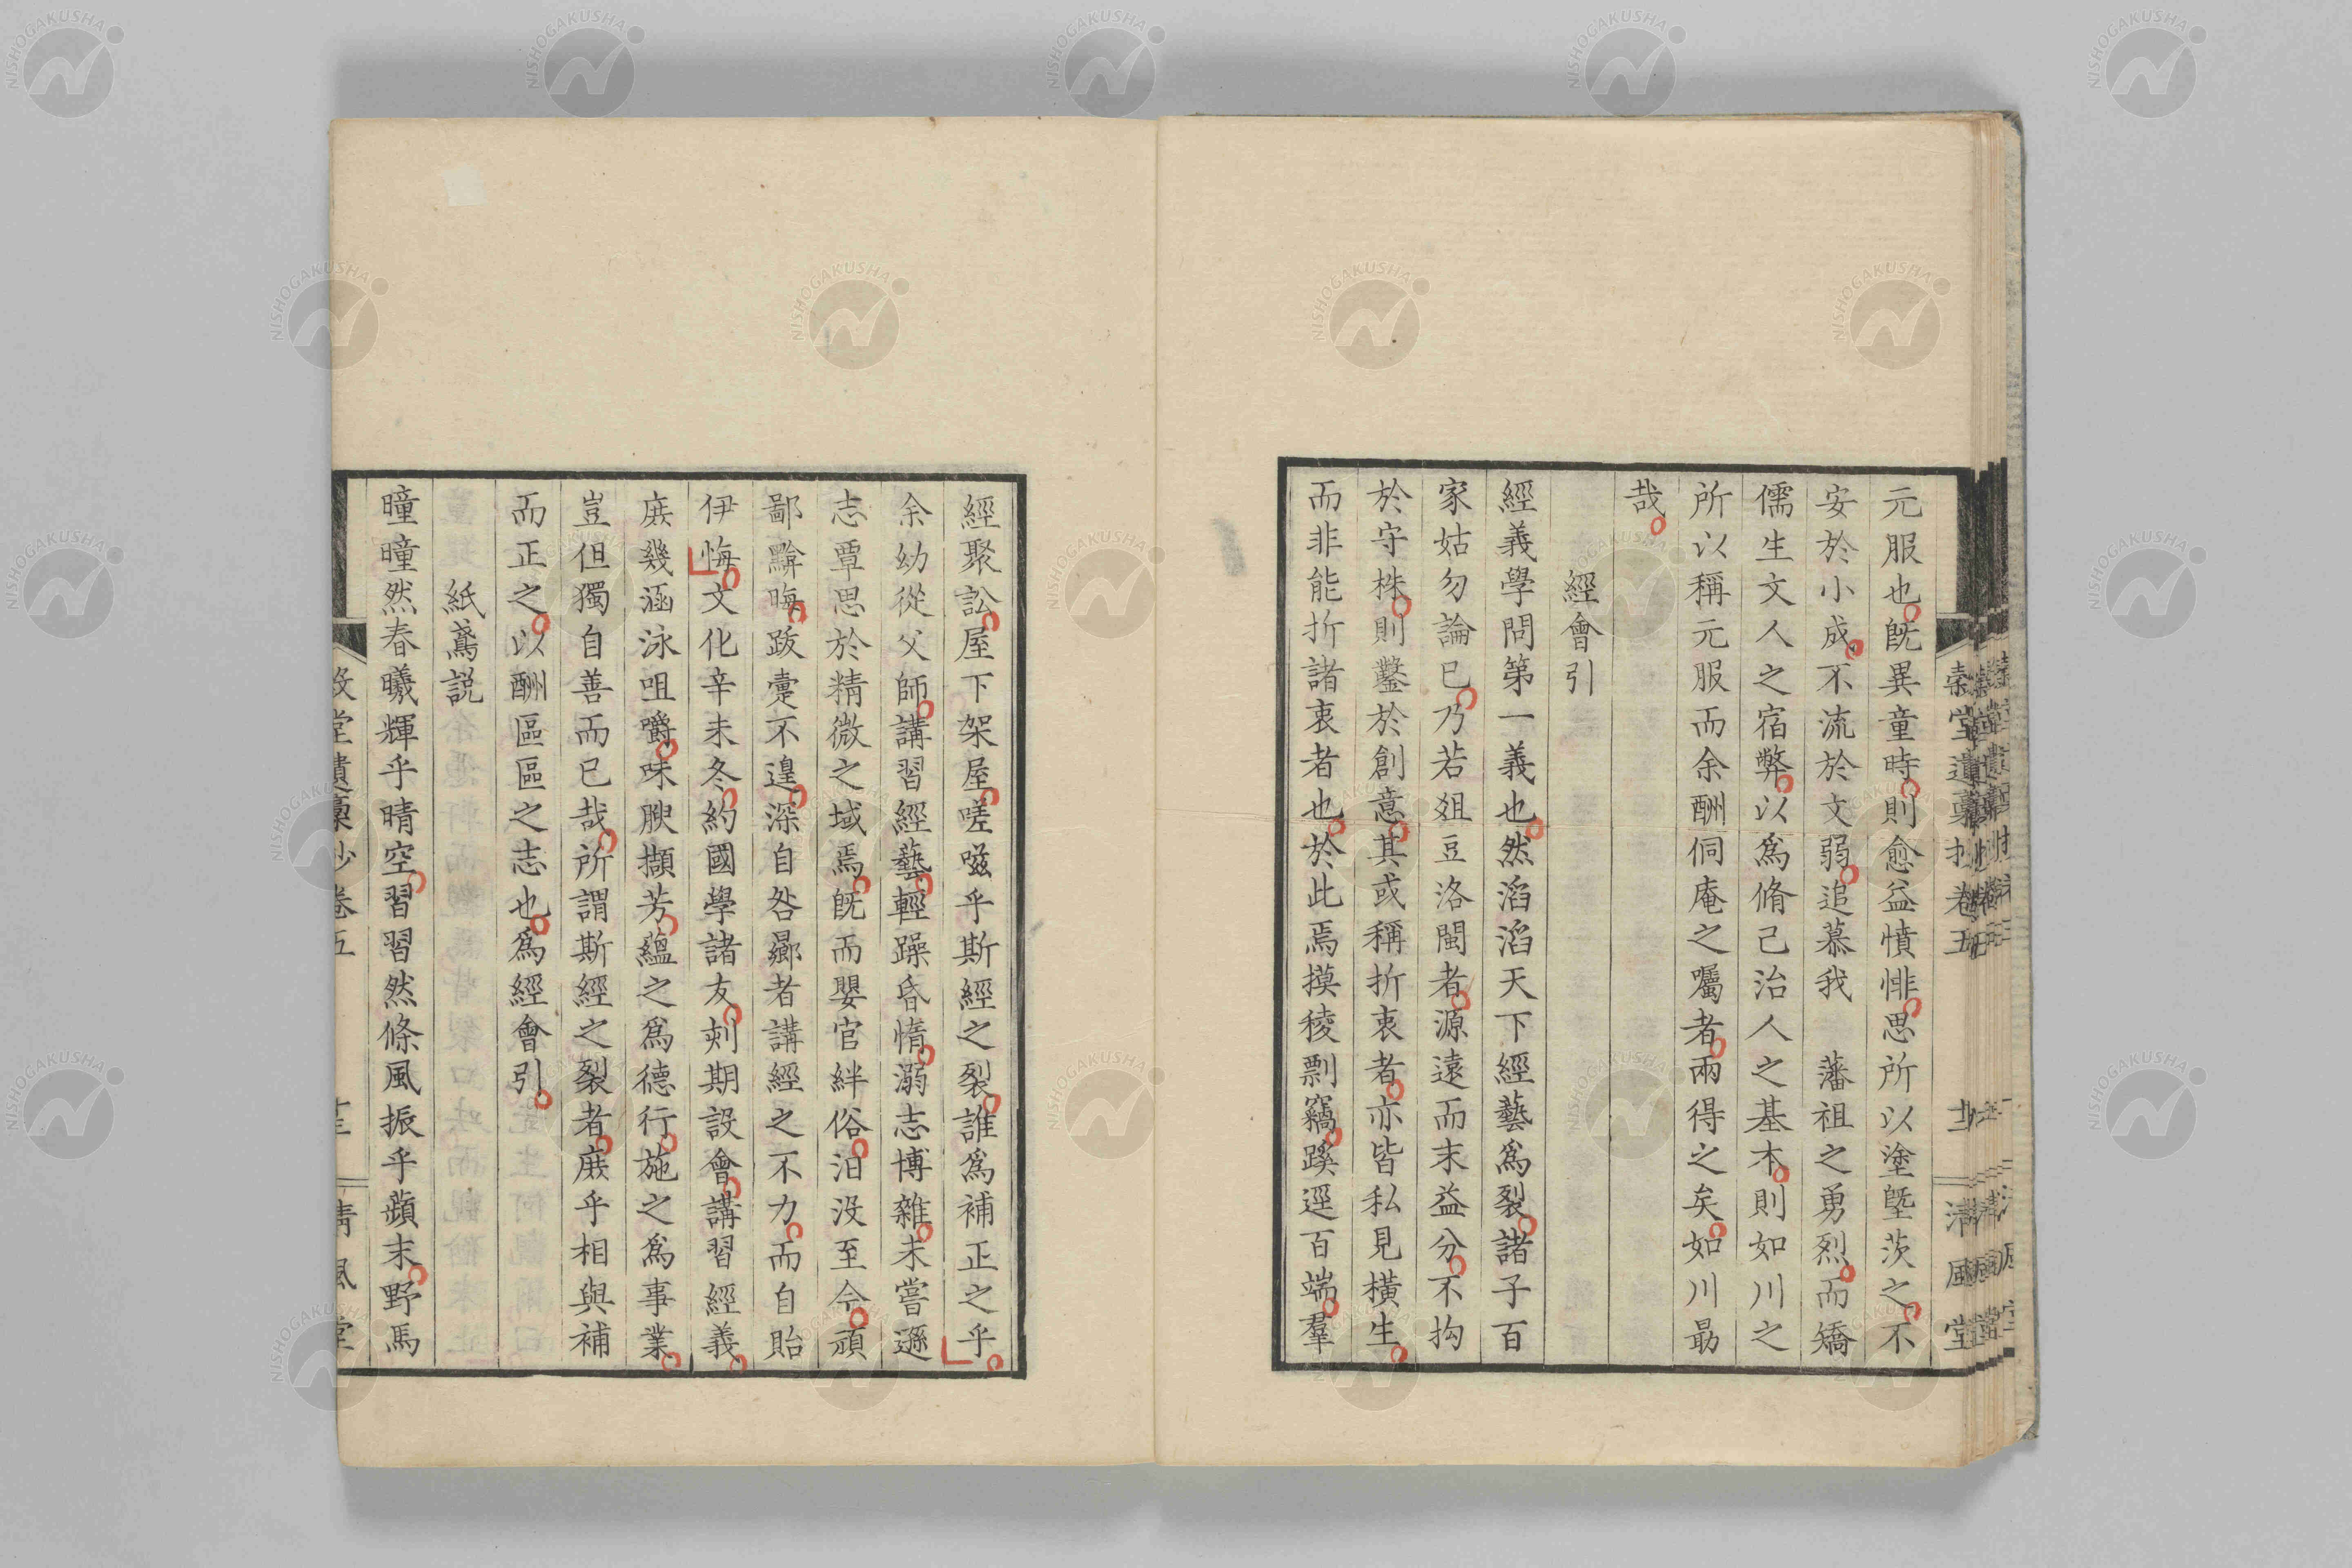 元服也既異童時則愈益憤悱思所以塗塈茨之不
安於小成不流於文弱追慕我 藩祖之勇烈而矯
儒生文人之宿弊以爲脩己治人之基本則如川之
所以稱元服而余酬侗庵之囑者兩得之矣如川勗
哉
經會引
經義學問第一義也然滔滔天下經藝爲裂諸子百
家姑勿論已乃若俎豆洛閩者源遠而末益分不拘
於守株則鑿於創意其或稱折衷者亦皆私見橫生
而非能折諸衷者也於此焉摸稜剽竊蹊逕百端羣
經聚訟屋下架屋嗟嗞乎斯經之裂誰爲補正之乎
余幼從父師講習經藝輕躁昏惰溺志博雜未嘗遜
志覃思於精微之域焉既而嬰官絆俗汩沒至今頑
鄙黭晦跋疐不遑深自咎曏者講經之不力而自貽
伊悔文化辛未冬約國學諸友刾期設會講習經義
庶幾涵泳咀嚼味腴擷芳蘊之爲德行施之爲事業
豈但獨自善而已哉所謂斯經之裂者庶乎相與補
而正之以酬區區之志也爲經會引
紙鳶説
曈曈然春曦輝乎晴空習習然條風振乎蘋末野馬